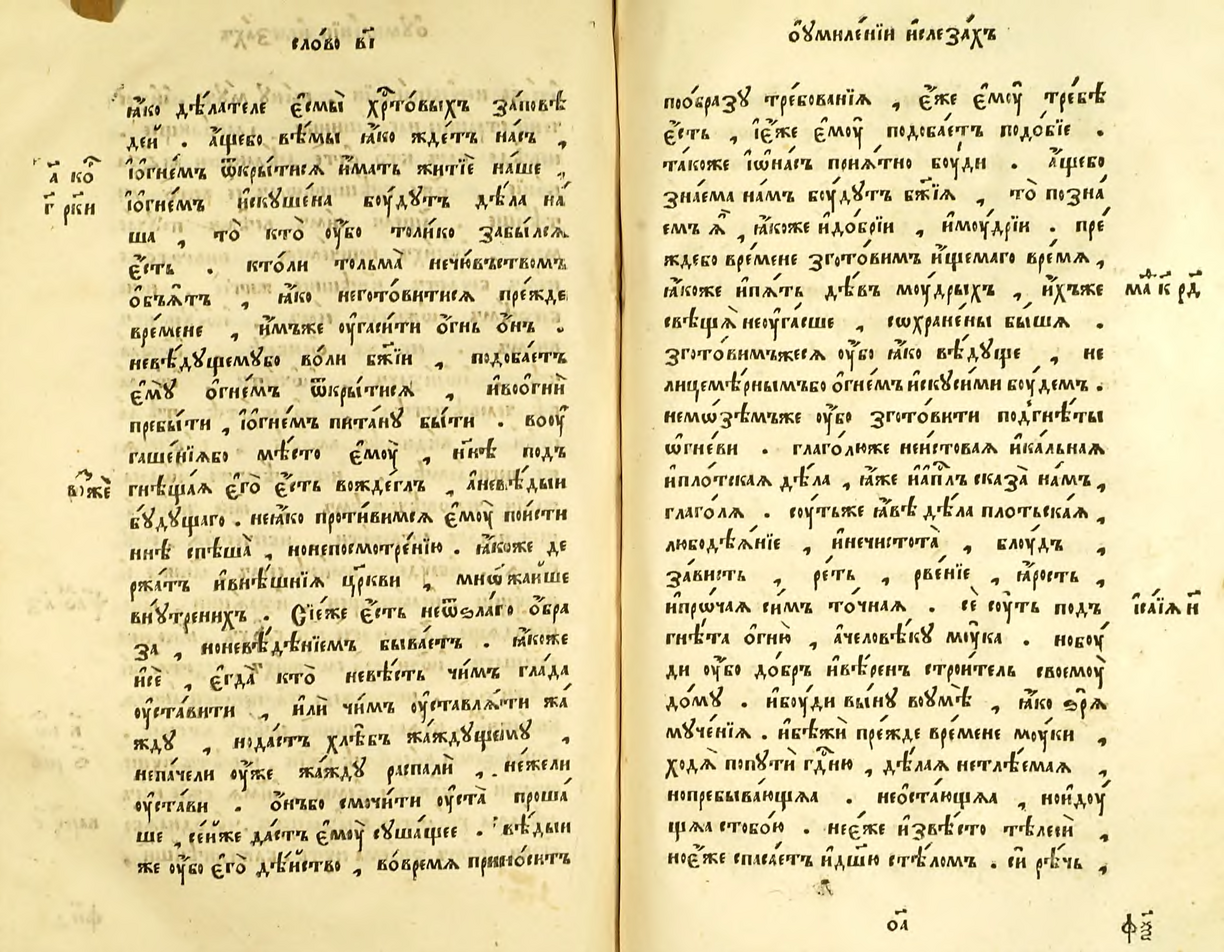 сло́во в҃і
ꙗ҆́ко дѣ́лателе є҆смы̀ хрⷭ҇то́выхъ за́повѣ
дей . а҆́щебо вѣ́мы ꙗ҆́ко жде́тъ на́съ ,
і҆ѻ҆гне́мъ ѿкры́тисѧ и҆́мать житїѐ на́ше ,
і҆ѻ҆гне́мъ и҆скꙋше́на бо́ꙋдꙋтъ дѣ́ла на́
ша , то̀ кто̀ оу҆́бо толи́ко забы́лсѧ
є҆́сть . кто́ли тольма̀ нечю́въствомъ
ѻ҆бъѧ́тъ , ꙗ҆́ко негото́витисѧ пре́жде
вре́мене , и҆́мъже оу҆гаси́ти ѻ҆́гнь ѻ҆́нъ .
невѣ́дꙋщемꙋбо во́ли бж҃їи , подоба́етъ
є҆мꙋ̀ ѻ҆гне́мъ ѿкры́тисѧ , и҆воѻ҆гнѝ
пребы́ти , і҆ѻ҆гне́мъ пита́нꙋ бы́ти . вооу҆
гаше́нїѧбо мѣ́сто є҆моу̀ , нн҃ѣ подъ
гнѣ́щаѧ є҆го̀ є҆́сть вожде́глъ , а҆невѣ́дыи
бꙋ́дꙋщаго . неꙗ҆́ко проти́вимсѧ є҆моу̀ пои́сти
ннѣ спѣша̀ , нонепосмотре́нїю . ꙗ҆́коже де
ржа́тъ и҆внѣ́шнїѧ цр҃кви , мнѡ́жайше
внꙋ́тренихъ . Сїе́же є҆́сть неѿѕла́го ѻ҆́бра
за , ноневѣ́дѣнїемъ быва́етъ . ꙗ҆́коже
и҆сѐ , є҆гда̀ кто̀ невѣ́сть чи́мъ гла́да
оу҆ста́вити , и҆лѝ чи́мъ оу҆ставлѧ́ти жа́
ждꙋ , нода́стъ хлѣ́бъ жа́ждꙋщемꙋ ,
непа́чели оу҆́же жа́ждꙋ распалѝ , не́жели
оу҆ста́ви . ѻ҆́нъбо смочи́ти оу҆ста̀ проша́
ше , се́йже да́стъ є҆моу̀ сꙋша́щее . вѣ́дыи
же оу҆́бо є҆го̀ дѣ́йство , во́времѧ прино́ситъ
в҃же
ѻ҆́ꙋмиле́нїи и҆слеза́хъ
поо́бразꙋ тре́бованїѧ , є҆́же є҆моу̀ тре́бѣ
є҆́сть , і҆є҆́же є҆моу̀ подоба́етъ подо́бїе .
та́коже і҆ѡ҆на́съ прїѧ́тно бо́ꙋди . а҆́щебо
зна́ема на́мъ бо́ꙋдꙋтъ бж҃їѧ , то̀ позна́
емъ ѧ҆̀ , ꙗ҆́коже и҆до́брїи , и҆мо́ꙋдрїи . пре́
ждебо вре́мене зготови́мъ и҆́щемаго вре́мѧ ,
ꙗ҆́коже и҆пѧ́ть дѣ́въ мо́ꙋдрыхъ , и҆́хъже
свѣщѧ̀ неоу҆га́сше , сѡхране́ны бы́шѧ .
зготови́мъжесѧ оу҆́бо ꙗ҆́ко вѣ́дꙋще , не
лицемѣ́рнымъбо ѻ҆гне́мъ и҆скꙋсими бо́ꙋдемъ .
немѡ́зѣмъже оу҆́бо згото́вити подгнѣ́ты
ѡ҆́гневи . глаго́люже неи́стоваѧ и҆ка́льнаѧ
и҆пло́тскаѧ дѣ́ла , ꙗ҆́же и҆а҆пⷭ҇лъ сказа̀ на́мъ ,
глаго́лѧ . со́ꙋтьже ꙗ҆́вѣ дѣ́ла пло́тьскаѧ ,
любодѣѧ́нїе , и҆нечистота̀ , блоу́дъ ,
за́висть , ре́ть , рве́нїе , ꙗ҆́рость ,
и҆прѡ́чаѧ си́мъ то́чнаѧ . сѐ со́ꙋть подъ
гнѣ́та ѻ҆гню̀ , а҆человѣ́кꙋ мо́ꙋка . нобоу́
ди оу҆́бо до́бръ и҆вѣ́ренъ строи́тель своемоу̀
до́мꙋ . и҆бо́ꙋди вы́нꙋ воу҆мѣ̀ , ꙗ҆́ко ѕрѧ̀
мꙋче́нїѧ . и҆бѣжѝ пре́жде вре́мене мо́ꙋки ,
ходѧ̀ попꙋтѝ гдⷭ҇ню , дѣ́лаѧ нетлѣ́емаѧ ,
нопребыва́ющѧа . неѻ҆ста́ющѧа , ноидоу́
щѧа стобо́ю . неє҆́же и҆звѣ́сто тѣлесѝ ,
ноє҆́же спаса́етъ и҆дш҃ю стѣ́ломъ . сѝ рѣ́чь ,
и҆са́їѧ н҃
о҃а